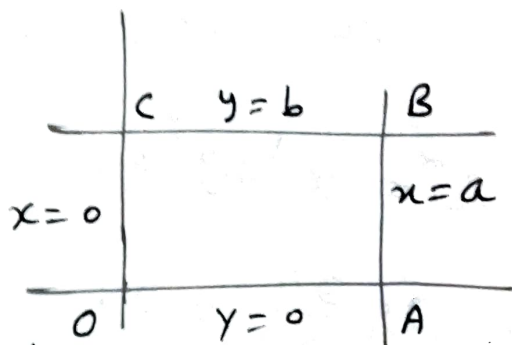 C y = b B
x = 0 x = a
O y = 0 A